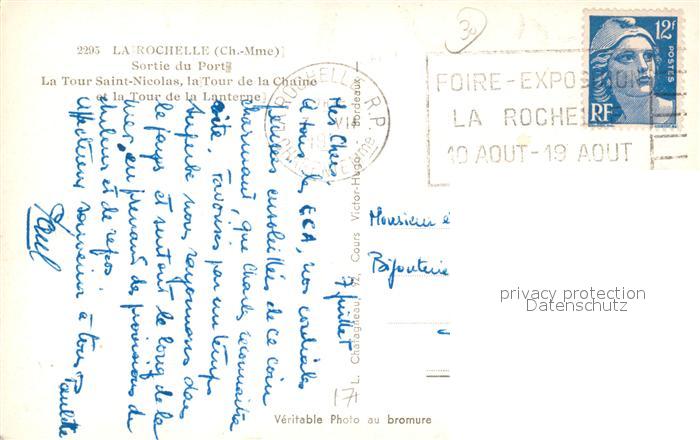 2295 LA ROCHELLE (Ch.-Mme)
Sortie du Port
La Tour Saint-Nicolas, la Tour de la Chaîne
et la Tour de la Lanterne
LA ROCHELLE R.P.
CHARENTE Mme
FOIRE-EXPOSITION
LA ROCHE
10 AOUT-19 AOUT
12F
POSTES
RF
7 juillet
Mes Chers,
A tous les ECA, nos cordiales
pensées ensoleillées de ce coin
charmant, que Charles reconnaîtra
vite. Favorisés par un temps
superbe nous rayonnons dans
le pays et surtout le long de la
mer, en prenant des provisions de
chaleur et de repos.
affectueux souvenirs à tous
Paulette
Paul
L. Chatagneau, 92, Cours Victor-Hugo - Bordeaux
Monsieur
Bijouterie
17
Véritable Photo au bromure
privacy protection
Datenschutz